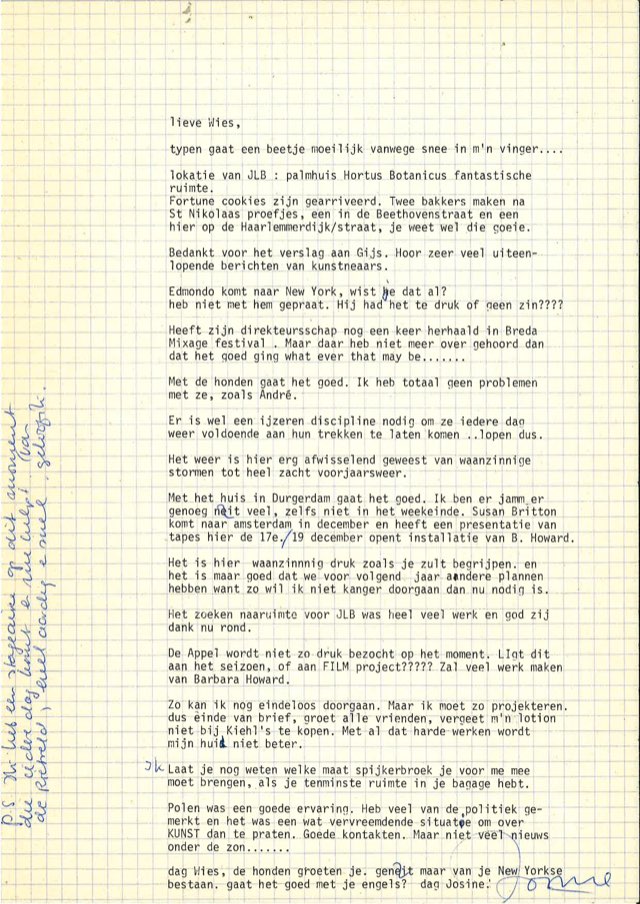 lieve Wies,
typen gaat een beetje moeilijk vanwege snee in m'n vinger....
lokatie van JLB : palmhuis Hortus Botanicus fantastische
ruimte.
Fortune cookies zijn gearriveerd. Twee bakkers maken na
St Nikolaas proefjes, een in de Beethovenstraat en een
hier op de Haarlemmerdijk/straat, je weet wel die goeie.
Bedankt voor het verslag aan Gijs. Hoor zeer veel uiteen-
lopende berichten van kunstneaars.
Edmondo komt naar New York, wist je dat al?
heb niet met hem gepraat. Hij had het te druk of geen zin????
Heeft zijn direkteursschap nog een keer herhaald in Breda
Mixage festival . Maar daar heb niet meer over gehoord dan
dat het goed ging what ever that may be.......
Met de honden gaat het goed. Ik heb totaal geen problemen
met ze, zoals André.
Er is wel een ijzeren discipline nodig om ze iedere dag
weer voldoende aan hun trekken te laten komen ..lopen dus.
Het weer is hier erg afwisselend geweest van waanzinnige
stormen tot heel zacht voorjaarsweer.
Met het huis in Durgerdam gaat het goed. Ik ben er jamm er
genoeg nooit veel, zelfs niet in het weekeinde. Susan Britton
komt naar amsterdam in december en heeft een presentatie van
tapes hier de 17e./19 december opent installatie van B. Howard.
Het is hier waanzinnnig druk zoals je zult begrijpen. en
het is maar goed dat we voor volgend jaar aandere plannen
hebben want zo wil ik niet kanger doorgaan dan nu nodig is.
Het zoeken naaruimte voor JLB was heel veel werk en god zij
dank nu rond.
De Appel wordt niet zo druk bezocht op het moment. LIgt dit
aan het seizoen, of aan FILM project????? Zal veel werk maken
van Barbara Howard.
Zo kan ik nog eindeloos doorgaan. Maar ik moet zo projekteren.
dus einde van brief, groet alle vrienden, vergeet m'n lotion
niet bij Kiehl's te kopen. Met al dat harde werken wordt
mijn huid niet beter.
Ik Laat je nog weten welke maat spijkerbroek je voor me mee
moet brengen, als je tenminste ruimte in je bagage hebt.
Polen was een goede ervaring. Heb veel van de politiek ge-
merkt en het was een wat vervreemdende situatie om over
KUNST dan te praten. Goede kontakten. Maar niet veel nieuws
onder de zon.......
dag Wies, de honden groeten je. geniet maar van je New Yorkse
bestaan. gaat het goed met je engels? dag Josine.
Josine
P.S. Ik heb een stagiaire op dit moment
die iedere dag komt en me helpt. (van
de Rietveld, heel aardig